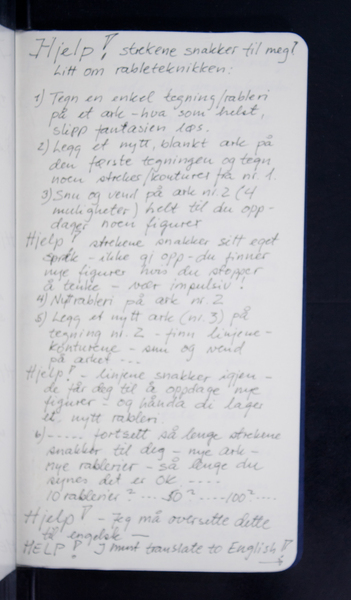 Hjelp! strekene snakker til meg!
Litt om rableteknikken:
1) Tegn en enkel tegning/rableri
på et ark - hva som helst,
slipp fantasien løs.
2) Legg et nytt, blankt ark på
den første tegningen og tegn
noen streker/konturer fra nr. 1.
3) Snu og vend på ark nr. 2 (4
muligheter) helt til du opp-
dager noen figurer
Hjelp! strekene snakker sitt eget
språk - ikke gi opp - du finner
nye figurer hvis du stopper
å tenke - vær impulsiv!
4) Nytt rableri på ark nr. 2
5) Legg et nytt ark (nr. 3) på
tegning nr. 2 - finn linjene -
konturene - snu og vend
på arket ---
Hjelp! - linjene snakker igjen -
de får deg til å oppdage nye
figurer - og hånda du lager
et nytt rableri.
6) ----- fortsett så lenge strekene
snakker til deg - nye ark -
nye rablerier - så lenge du
synes det er OK ----
10 rablerier? ---- 50? ---- 100? ----
Hjelp! - Jeg må oversette dette
til engelsk —
HELP! I must translate to English!